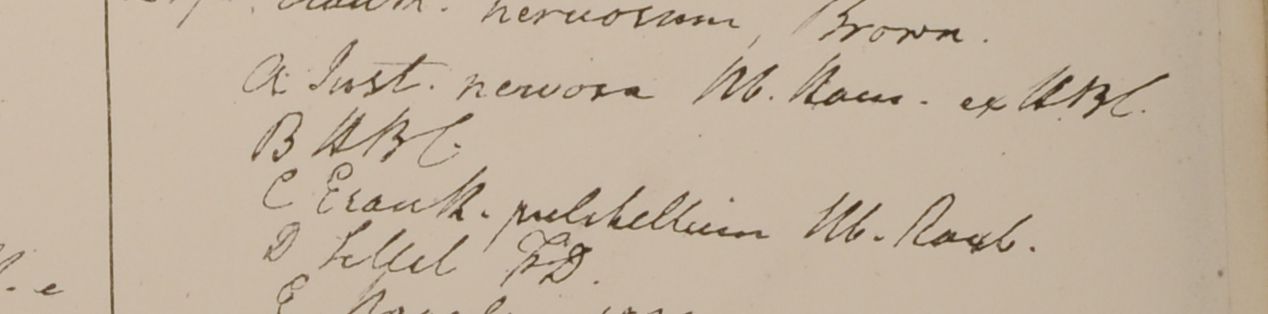 nervosum, Brown.
A Just. nervosa Hb. Ham. ex HBC.
B HBC.
C Eranth. pulchellum Hb. Roxb.
D FD.
E